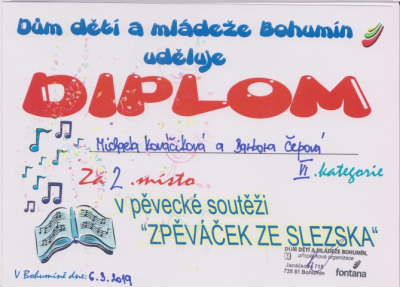 Dům dětí a mládeže Bohumín
uděluje
DIPLOM
Michaela Kováčiková a Barbora Čepová
VI. kategorie
Za 2. místo
v pěvecké soutěži
"ZPĚVÁČEK ZE SLEZSKA"
DŮM DĚTÍ A MLÁDEŽE BOHUMÍN,
příspěvková organizace
Janáčkova 715
735 81 Bohumín
fontána
V Bohumíně dne: 6.3.2019